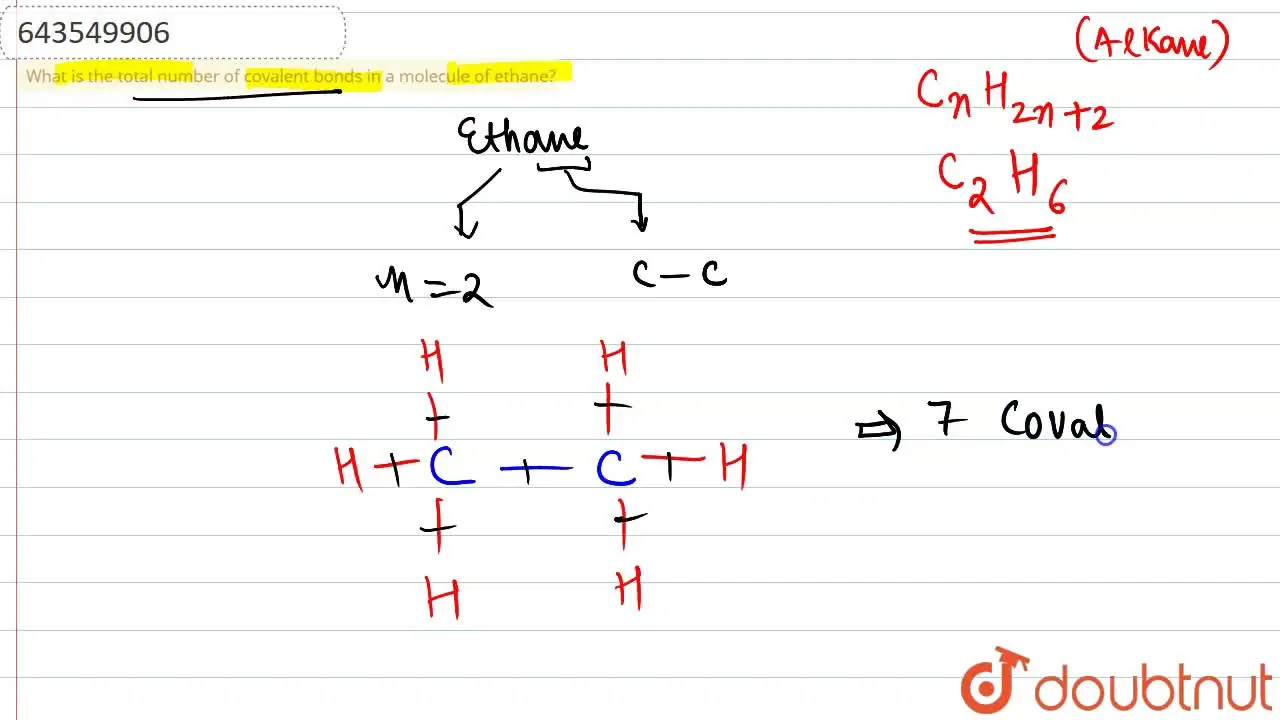 643549906
What is the total number of covalent bonds in a molecule of ethane?
(Alkane)
CnH2n+2
C2H6
Ethane
n=2
C-C
H H
H C C H
H H
⇒ 7 Coval
doubtnut